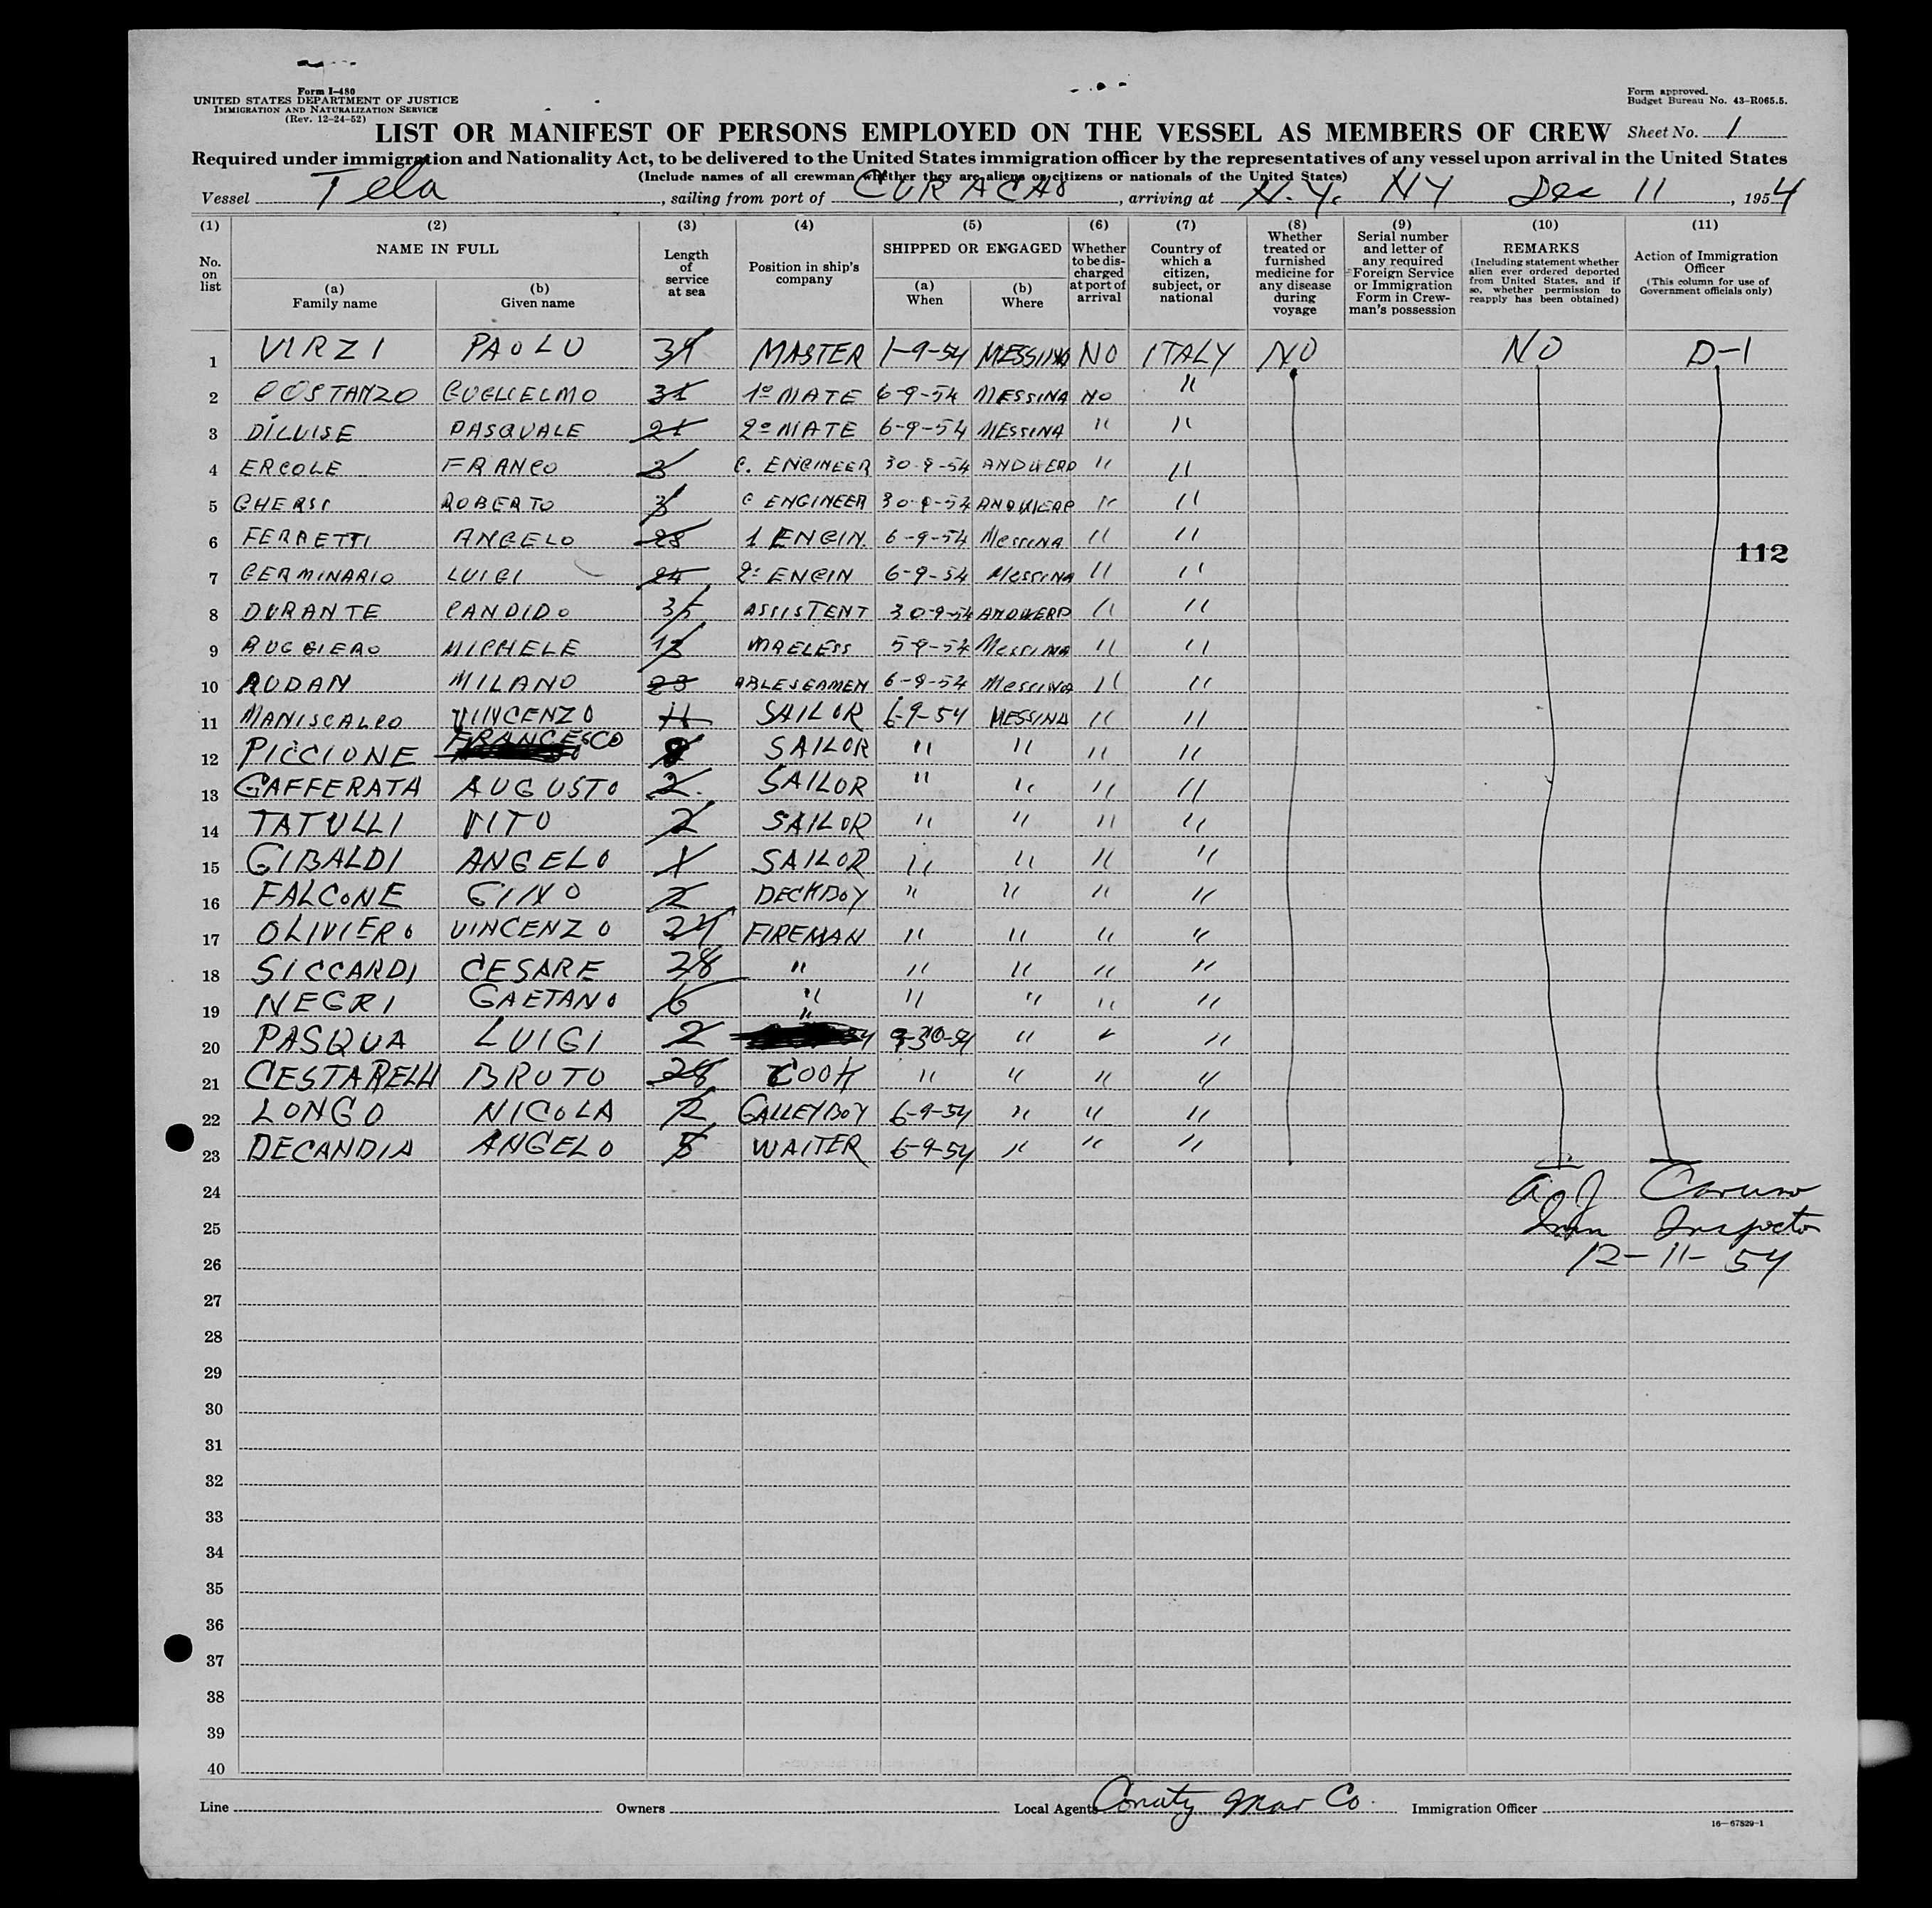 Form I-480
UNITED STATES DEPARTMENT OF JUSTICE
IMMIGRATION AND NATURALIZATION SERVICE
(Rev. 12-24-52)
Form approved.
Budget Bureau No. 43-R065.5.
LIST OR MANIFEST OF PERSONS EMPLOYED ON THE VESSEL AS MEMBERS OF CREW Sheet No. 1
Required under immigration and Nationality Act, to be delivered to the United States immigration officer by the representatives of any vessel upon arrival in the United States
(Include names of all crewman whether they are aliens or citizens or nationals of the United States)
Vessel Tela, sailing from port of CURACAO, arriving at N.Y. NY Dec 11, 1954
(1) No. on list
(2) NAME IN FULL
(a) Family name
(b) Given name
(3) Length of service at sea
(4) Position in ship's company
(5) SHIPPED OR ENGAGED
(a) When
(b) Where
(6) Whether to be discharged at port of arrival
(7) Country of which a citizen, subject, or national
(8) Whether treated or furnished medicine for any disease during voyage
(9) Serial number and letter of any required Foreign Service or Immigration Form in Crewman's possession
(10) REMARKS (Including statement whether alien ever ordered deported from United States, and if so, whether permission to reapply has been obtained)
(11) Action of Immigration Officer (This column for use of Government officials only)
1 VIRZI PAOLO MASTER 1-9-54 MESSINA NO ITALY NO NO D-1
2 COSTANZO GUGLIELMO 1º MATE 6-9-54 MESSINA NO "
3 DILUISE PASQUALE 21 2º MATE 6-9-54 MESSINA " "
4 ERCOLE FRANCO 3 C. ENGINEER 30-9-54 ANDWERP " "
5 GHERSI ROBERTO 3 C ENGINEER 30-9-54 ANDWERP " "
6 FERRETTI ANGELO 28 1 ENGIN. 6-9-54 MESSINA " "
7 GERMINARIO LUIGI 24 2º ENGIN 6-9-54 MESSINA " "
8 DURANTE CANDIDO 35 ASSISTENT 30-9-54 ANDWERP " "
9 RUGGIERO MICHELE 13 WIRELESS 5-9-54 MESSINA " "
10 RUDAN MILANO 23 ABLESEAMEN 6-9-54 MESSINA " "
11 MANISCALCO VINCENZO 11 SAILOR 6-9-54 MESSINA " "
12 PICCIONE FRANCESCO SAILOR " " " "
13 GAFFERATA AUGUSTO 2 SAILOR " " " "
14 TATULLI VITO 2 SAILOR " " " "
15 GIBALDI ANGELO 1 SAILOR " " " "
16 FALCONE GINO 2 DECKBOY " " " "
17 OLIVIERO VINCENZO 24 FIREMAN " " " "
18 SICCARDI CESARE 28 " " " " "
19 NEGRI GAETANO 6 " " " " "
20 PASQUA LUIGI 2 " 9-30-54 " " "
21 CESTARELLI BRUTO 28 COOK " " " "
22 LONGO NICOLA 2 GALLEYBOY 6-9-54 " " "
23 DECANDIA ANGELO 5 WAITER 6-9-54 " " "
112
24
A J Caruso
25
Imm Inspector
26
12-11-54
27
28
29
30
31
32
33
34
35
36
37
38
39
40
Line Owners Local Agents Conaty Mar Co. Immigration Officer
16—67829-1